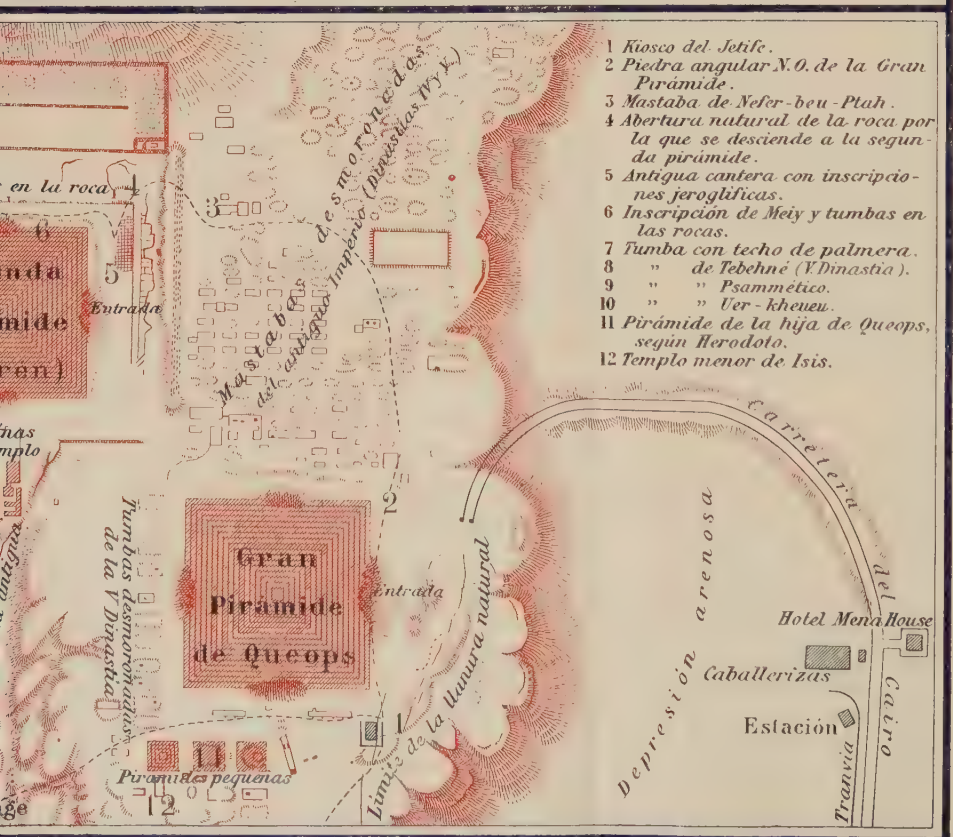 1 Kiosco del Jetife.
2 Piedra angular N.O. de la Gran
Pirámide.
3 Mastaba de Nefer-beu-Ptah.
4 Abertura natural de la roca por
la que se desciende a la segun-
da pirámide.
5 Antigua cantera con inscripcio-
nes jeroglíficas.
6 Inscripción de Meiy y tumbas en
las rocas.
7 Tumba con techo de palmera.
8 " de Tebehné (V. Dinastía).
9 " " Psammético.
10 " " Uer-kheueu.
11 Pirámide de la hija de Queops,
según Herodoto.
12 Templo menor de Isis.
en la roca
4
3
6
5
Entrada
nda
mide
ren)
Mastabas desmoronadas
del antiguo Imperio (Dinastías IV y V.)
nas
mplo
antigua
Tumbas desmoronadas
de la V Dinastía
2
Gran
Pirámide
de Queops
Entrada
Límite de la llanura natural
1
11
Piramides pequeñas
12
age
Depresión arenosa
Carretera del Cairo
Hotel Mena House
Caballerizas
Estación
Tranvía